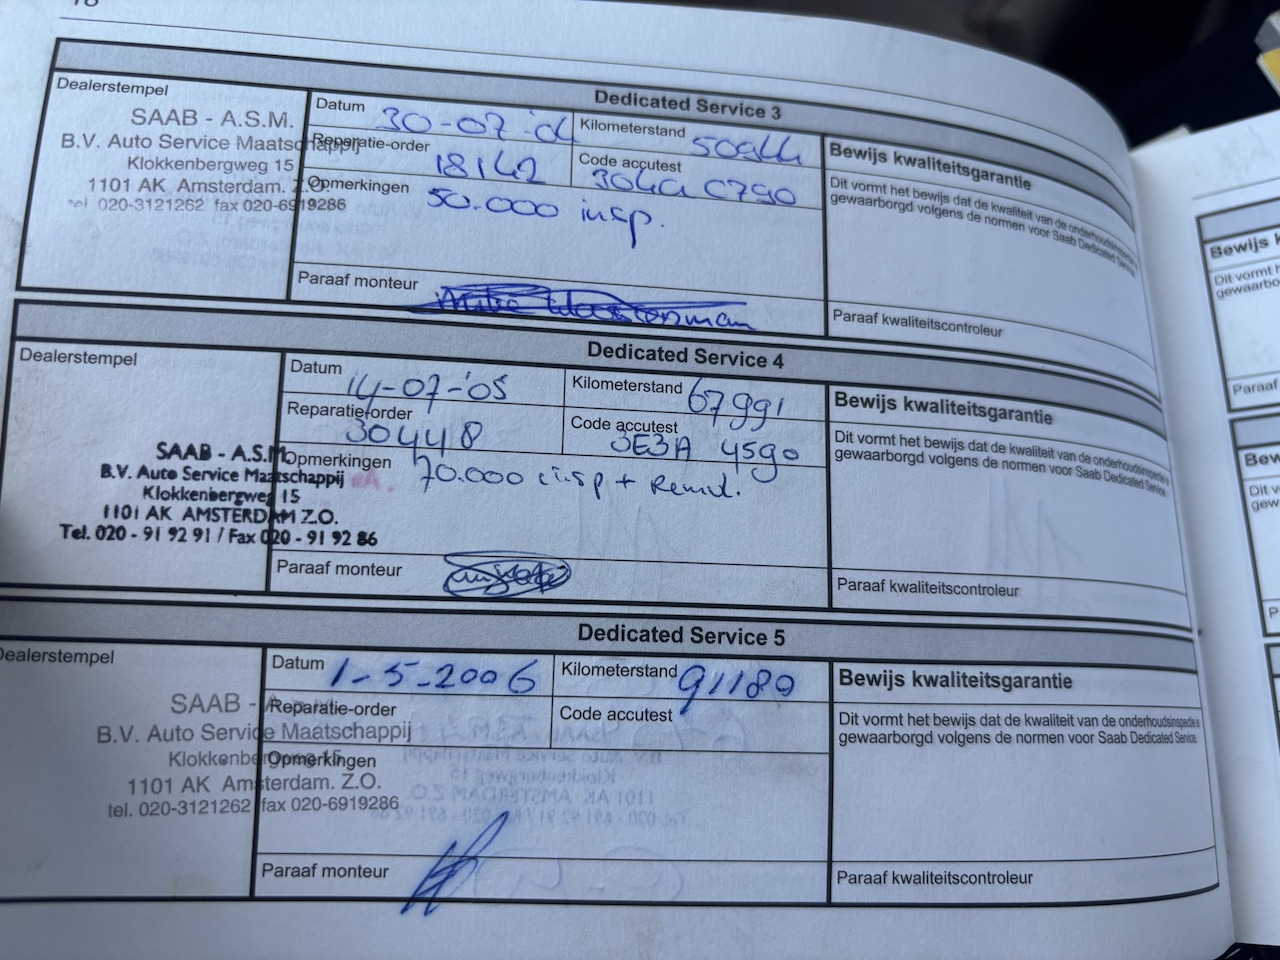 Dedicated Service 3
Dealerstempel
SAAB - A.S.M.
B.V. Auto Service Maatschappij
Klokkenbergweg 15
1101 AK Amsterdam. Z.O.
tel 020-3121262 fax 020-6919286
Datum 30-07-'04
Kilometerstand
Reparatie-order 18142
Code accutest
Opmerkingen 50.000 insp.
Paraaf monteur
Bewijs kwaliteitsgarantie
Dit vormt het bewijs dat de kwaliteit van de onderhoudsinspectie is
gewaarborgd volgens de normen voor Saab Dedicated Service.
Paraaf kwaliteitscontroleur
Dedicated Service 4
Dealerstempel
SAAB - A.S.M.
B.V. Auto Service Maatschappij
Klokkenbergweg 15
1101 AK AMSTERDAM Z.O.
Tel. 020 - 91 92 91 / Fax 020 - 91 92 86
Datum 14-07-'05
Kilometerstand 67991
Reparatie-order 30448
Code accutest 3E3A 4590
Opmerkingen 70.000 insp + Remvl.
Paraaf monteur
Bewijs kwaliteitsgarantie
Dit vormt het bewijs dat de kwaliteit van de onderhoudsinspectie is
gewaarborgd volgens de normen voor Saab Dedicated Service.
Paraaf kwaliteitscontroleur
Dedicated Service 5
Dealerstempel
SAAB - A.
B.V. Auto Service Maatschappij
Klokkenbergweg 15
1101 AK Amsterdam. Z.O.
tel. 020-3121262 fax 020-6919286
Datum 1-5-2006
Kilometerstand 91180
Reparatie-order
Code accutest
Opmerkingen
Paraaf monteur
Bewijs kwaliteitsgarantie
Dit vormt het bewijs dat de kwaliteit van de onderhoudsinspectie is
gewaarborgd volgens de normen voor Saab Dedicated Service.
Paraaf kwaliteitscontroleur
Bewijs k
Dit vormt h
gewaarbo
Paraaf
Bew
Dit v
gew
P